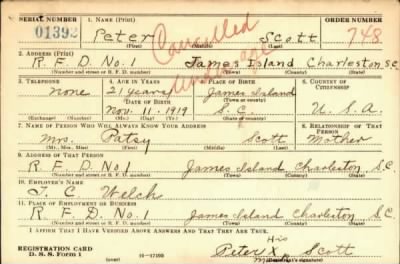 SERIAL NUMBER 1. NAME (Print) ORDER NUMBER
01392 Peter Scott 748
(First) (Middle) (Last)
Cancelled
2. ADDRESS (Print)
R.F.D. No. 1 James Island Charleston S.C.
(Number and street or R. F. D. number) (Town) (County) (State)
3. TELEPHONE 4. AGE IN YEARS 5. PLACE OF BIRTH 6. COUNTRY OF CITIZENSHIP
none 21 years James Island
DATE OF BIRTH (Town or county)
Nov. 11, 1919 S.C. U.S.A
(Exchange) (Number) (Mo.) (Day) (Yr.) (State or country)
7. NAME OF PERSON WHO WILL ALWAYS KNOW YOUR ADDRESS 8. RELATIONSHIP OF THAT PERSON
Mrs. Patsy Scott Mother
(Mr., Mrs., Miss) (First) (Middle) (Last)
9. ADDRESS OF THAT PERSON
R.F.D. No. 1 James Island Charleston S.C.
(Number and street or R. F. D. number) (Town) (County) (State)
10. EMPLOYER'S NAME
T. C. Welch
11. PLACE OF EMPLOYMENT OR BUSINESS
R.F.D. No. 1 James Island Charleston S.C.
(Number and street or R. F. D. number) (Town) (County) (State)
I AFFIRM THAT I HAVE VERIFIED ABOVE ANSWERS AND THAT THEY ARE TRUE.
REGISTRATION CARD His
D. S. S. Form 1 (over) 16—17105 Peter X Scott
(Registrant's signature)